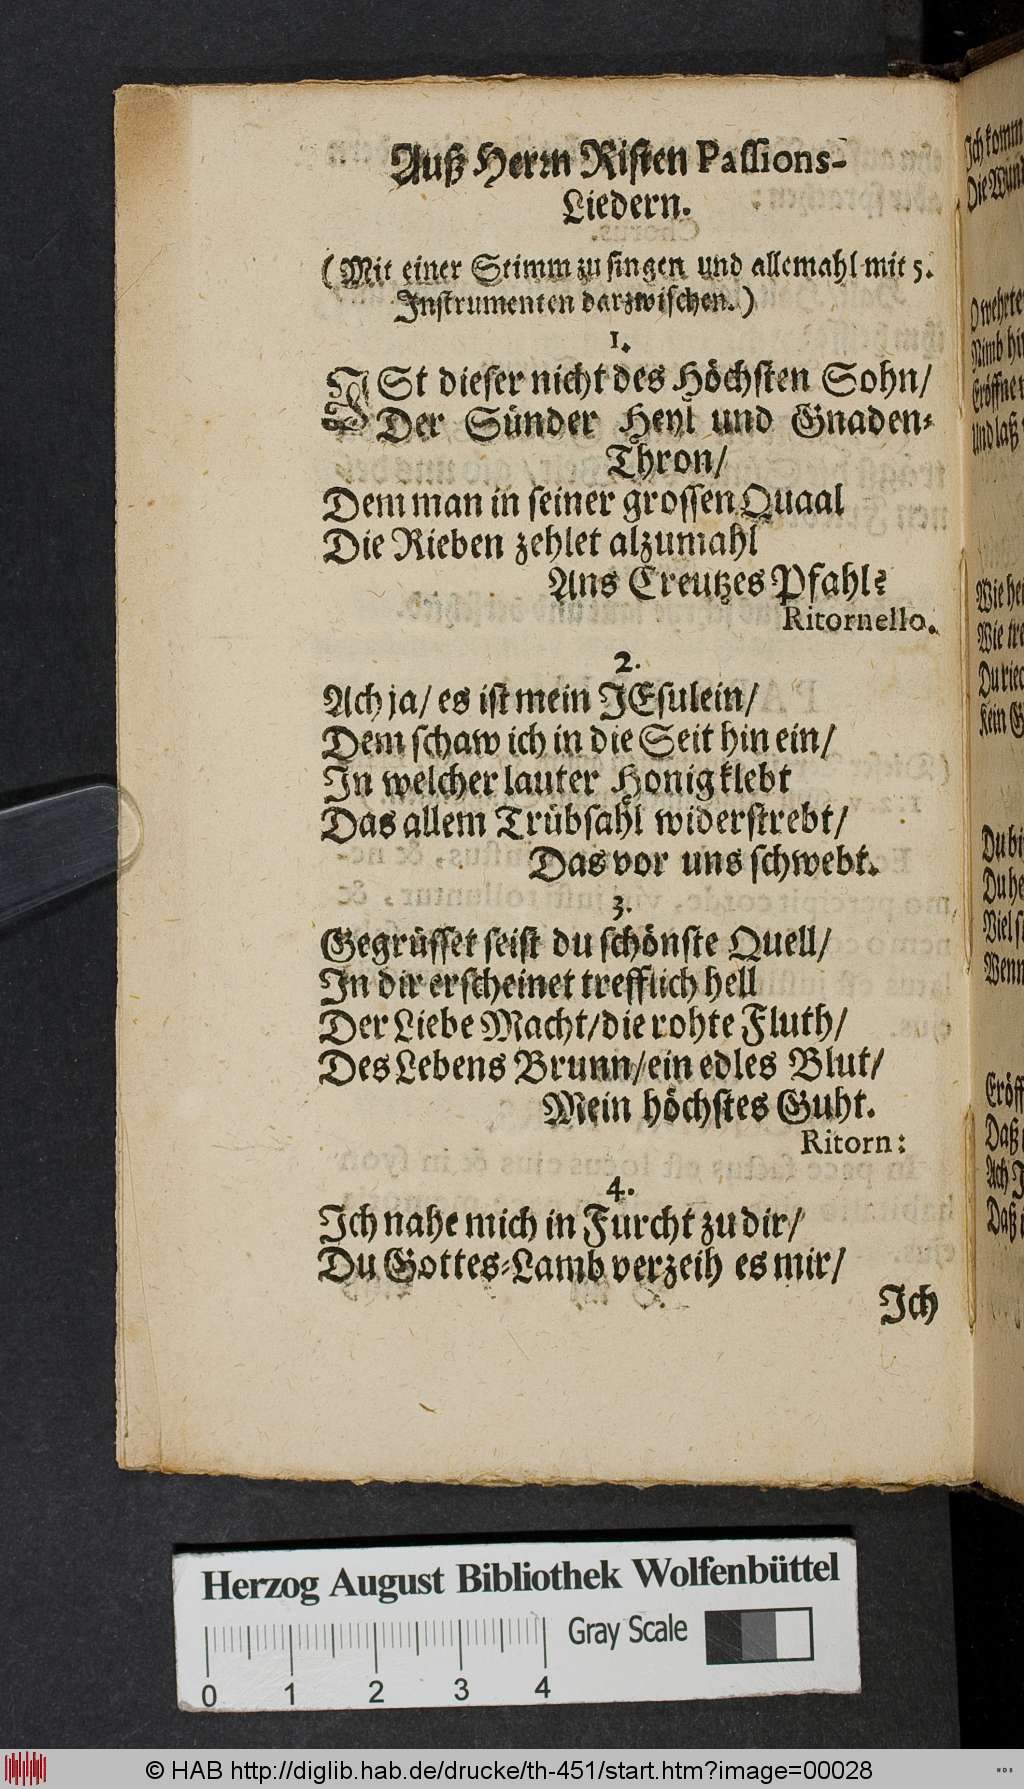 Auß Herrn Risten Passions-
Liedern.
(Mit einer Stimm zu singen und allemahl mit 5.
Instrumenten darzwischen.)
1.
ISt dieser nicht des Höchsten Sohn/
Der Sünder Heyl und Gnaden-
Thron/
Dem man in seiner grossen Quaal
Die Rieben zehlet alzumahl
Ans Creutzes Pfahl?
Ritornello.
2.
Ach ja/ es ist mein JEsulein/
Dem schaw ich in die Seit hin ein/
In welcher lauter Honig klebt
Das allem Trübsahl widerstrebt/
Das vor uns schwebt.
3.
Gegrüsset seist du schönste Quell/
In dir erscheinet trefflich hell
Der Liebe Macht/die rohte Fluth/
Des Lebens Brunn/ein edles Blut/
Mein höchstes Guht.
Ritorn:
4.
Ich nahe mich in Furcht zu dir/
Du Gottes-Lamb verzeih es mir/
Ich
Ich komm
Die Wun
O wehrte
Nimb hi
Eröffne
Und laß
Wie hei
Wie tre
Du riec
Kein G
Du bi
Du he
Viel s
Wenn
Eröff
Daß
Ach J
Daß
Herzog August Bibliothek Wolfenbüttel
Gray Scale
0 1 2 3 4
© HAB http://diglib.hab.de/drucke/th-451/start.htm?image=00028